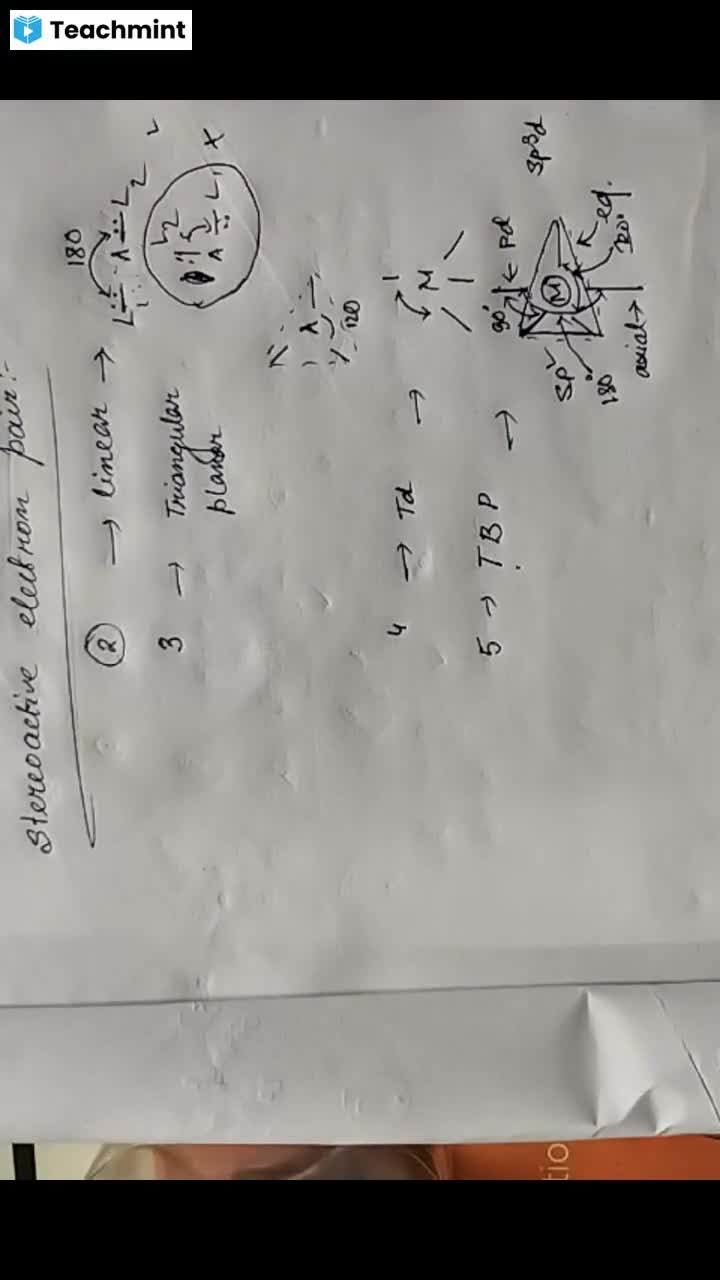 Teachmint
stereoactive electron pair:-
② → linear → L1 A L2
180
A L1 L2 X
3 → Triangular
planar
A
120
4 → Td → M
5 → TBP →
M
90°
pd
sp3d
eq.
120°
axial →
180°
tio